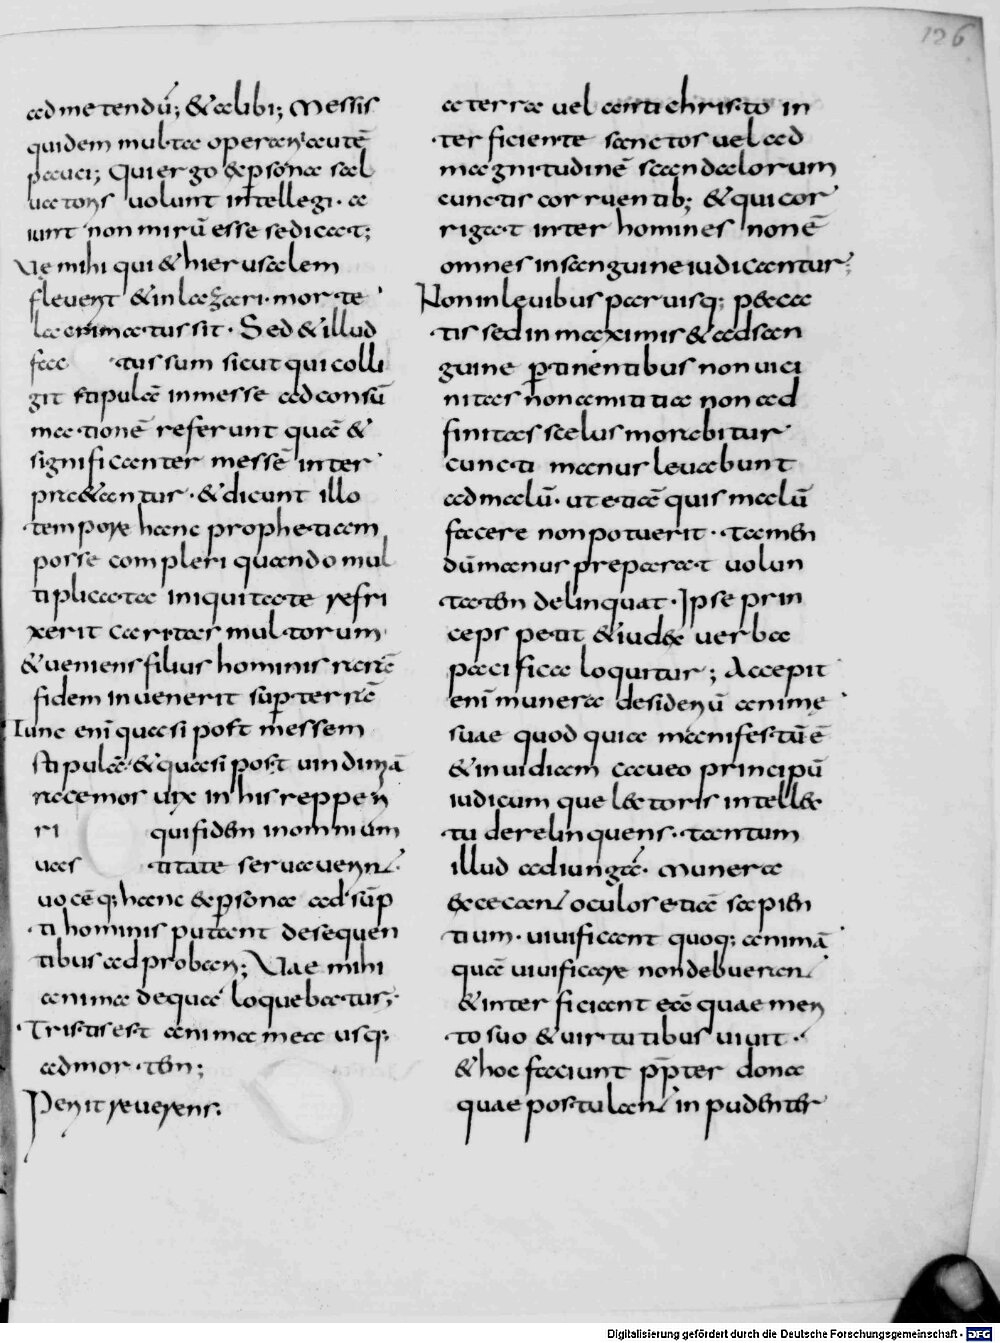 126
admetendū; & alibi; Messis
quidem multa operarii autē
pauci; Qui ergo & psona sal
uatoris volunt intellegi· a
iunt non mirū esse se dicat;
Vae mihi qui & hierusalem
fleverit & in lazari· morte
lacrimatus sit· Sed & illud
fac tus sum sicut qui colli
git stipulā in messe ad consū
mationē referunt quā &
significanter messē inter
praetantur· & dicunt illo
tempore hanc prophetiam
posse compleri quando mul
tiplicata iniquitate refri
xerit caritas multorum
& veniens filius hominis rarā
fidem invenerit sup terrā
Tunc enī quasi post messem
stipulā & quasi post vindimiā
racemos vix in his repperi
ri qui fidem in omnium
uas titate servaverint·
vocēq; hanc & psona ad sūp
ti hominis putant de sequen
tibus ad probari; Vae mihi
anima de quā loquebatur;
Tristis est anima mea usq;
ad mortem;
Perit reverens;
a terra vel anti christo in
terficiente sanctos vel ad
magnitudinē scandalorum
cunctis corruentib; & qui cor
rigat inter homines non ē
omnes in sanguine iudicantur;
Non in levibus parvisq; pecca
tis sed in maximis & ad san
guine ptinentibus non vici
nitas non amititia non ad
finitas scelus morabitur
cuncti manus levabunt
ad malū· ut etiā qui smalū
facere non potuerit· tamen
dū manus preparat volun
tatem delinquat· Ipse prin
ceps petit & iudex verba
pacifica loquitur; Accepit
enī munera desideriū anime
suae quod quia manifestū ē
& invidiam caveo principū
iudicum que lectoris intellec
tu derelinquens· tantum
illud adiungā· munera
excecant oculos etiā sapien
tium· vivificant quoq; animā
quā vivificare non debuerant
& interficiunt eā quae meri
to suo & virtutibus vivit·
& hoc faciunt ppter dona
quae postulant inpudenter
Digitalisierung gefördert durch die Deutsche Forschungsgemeinschaft - DFG